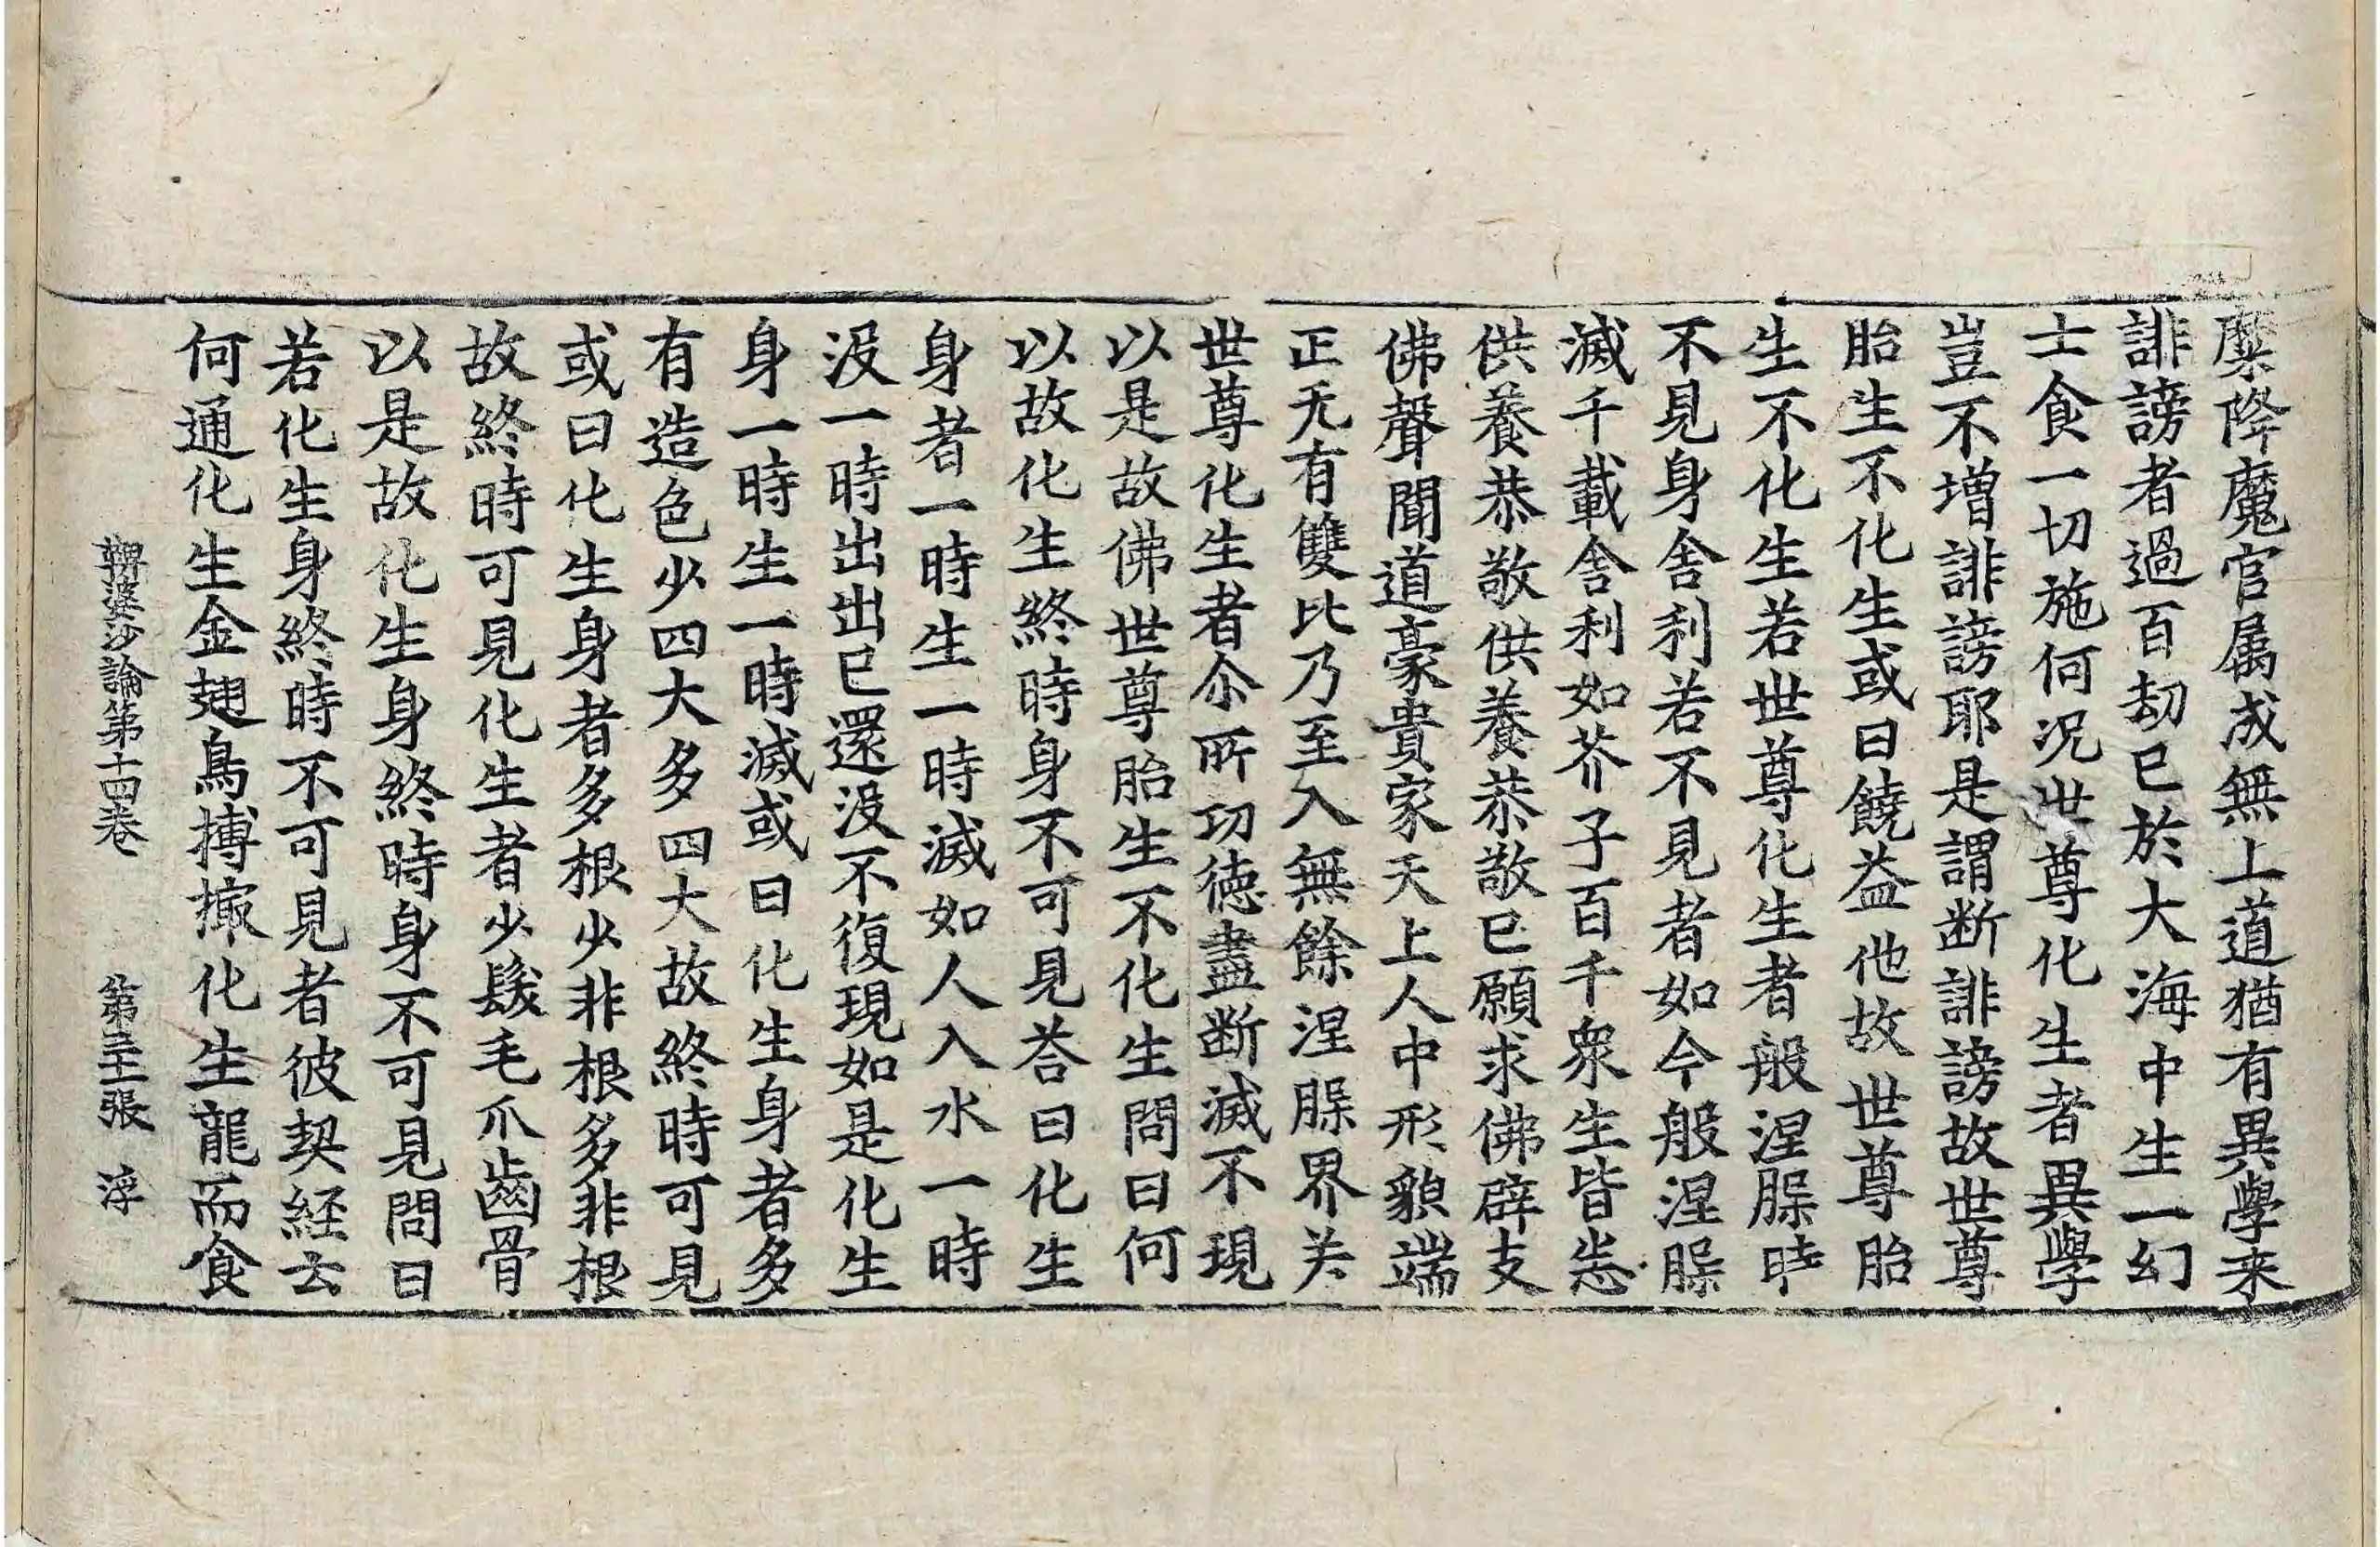 麋降魔官属成無上道猶有異學来
誹謗者過百劫已於大海中生一幻
士食一切施何況世尊化生者異學
豈不增誹謗耶是謂断誹謗故世尊
胎生不化生或曰饒益他故世尊胎
生不化生若世尊化生者般涅槃時
不見身舍利若不見者如今般涅槃
滅千載舍利如芥子百千衆生皆悉
供養恭敬供養恭敬已願求佛辟支
佛聲聞道豪貴家天上人中形貌端
正无有雙比乃至入無餘涅槃界关
世尊化生者尒所功徳盡断滅不現
以是故佛世尊胎生不化生問曰何
以故化生終時身不可見荅曰化生
身者一時生一時滅如人入水一時
没一時出出已還没不復現如是化生
身一時生一時滅或曰化生身者多
有造色少四大多四大故終時可見
或曰化生身者多根少非根多非根
故終時可見化生者少髮毛爪齒骨
以是故化生身終時身不可見問曰
若化生身終時不可見者彼契経云
何通化生金翅鳥搏撮化生龍而食
鞞婆沙論第十四卷 第三十一張 浮